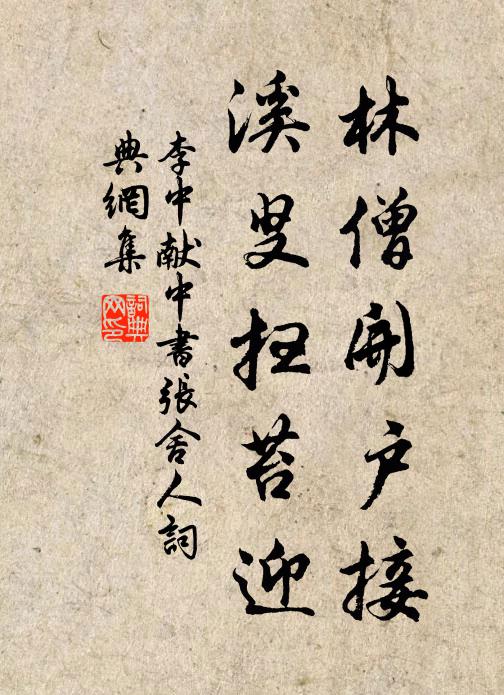 林僧開户接
溪叟扫苔迎
李中献中書張舍人詞
典網集
詞典網印